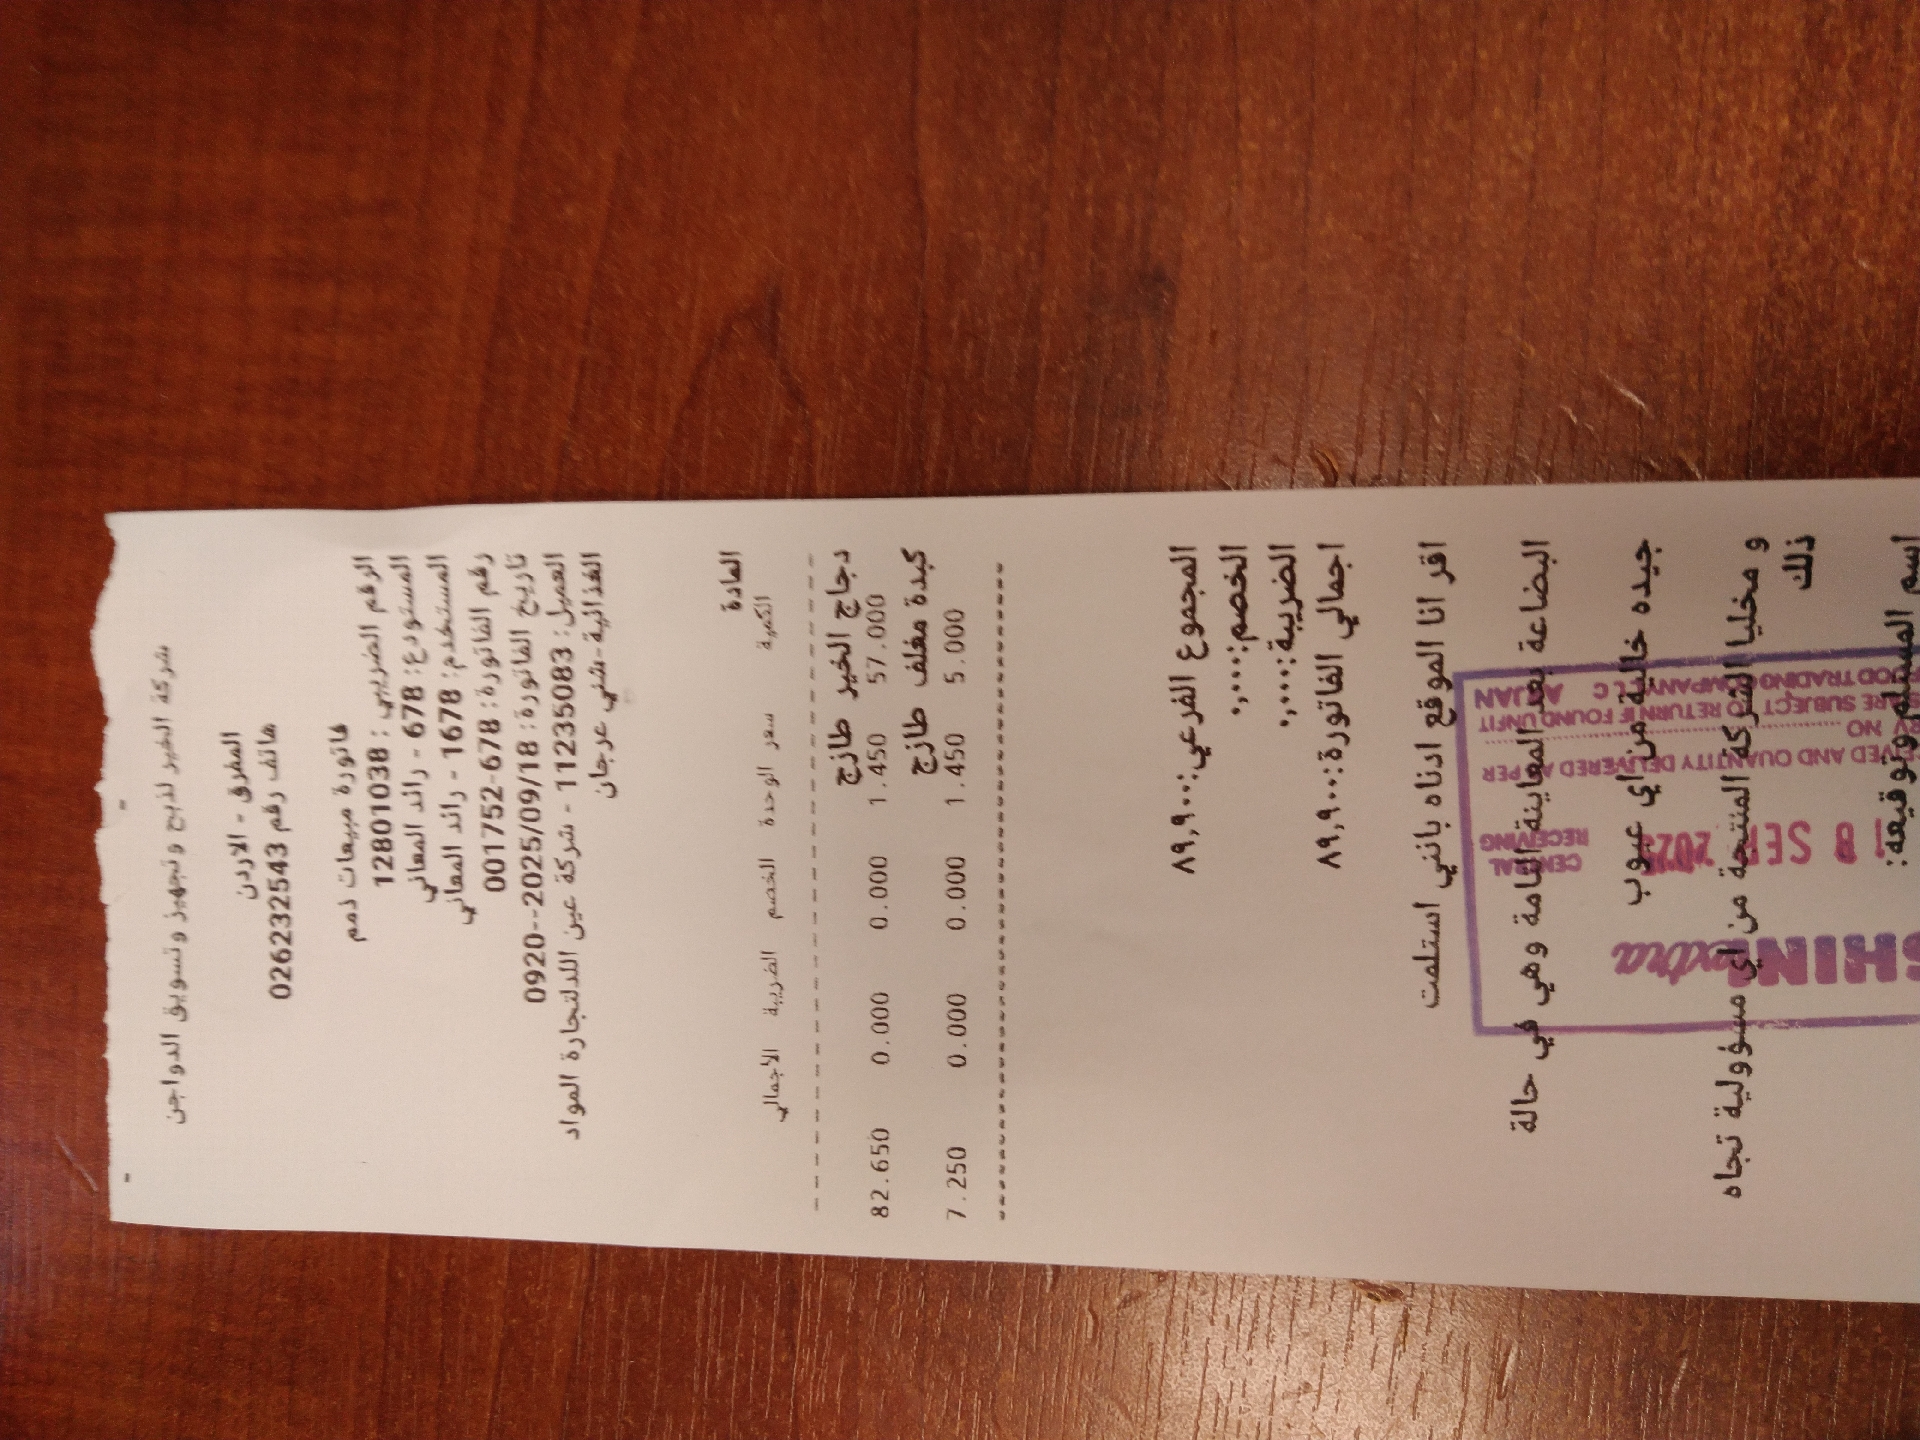 شركة الخير لذبح وتجهيز وتسويق الدواجن
المفرق - الاردن
هاتف رقم 0262332543
فاتورة مبيعات ذمم
الرقم الضريبي : 12801038
المستودع: 678 - رائد المعاني
المستخدم: 1678 - رائد المعاني
رقم الفاتورة: 678-001752
تاريخ الفاتورة: 2025/09/18--0920
العميل: 11235083 - شركة عين اللدلتجارة المواد
الغذائية-شني عرجان
المادة
الكمية سعر الوحدة الخصم الضريبة الاجمالي
دجاج الخير طازج
57.000 1.450 0.000 0.000 82.650
كبدة مغلف طازج
5.000 1.450 0.000 0.000 7.250
المجموع الفرعي:٨٩,٩٠٠
الخصم:٠,٠٠٠
الضريبة:٠,٠٠٠
اجمالي الفاتورة:٨٩,٩٠٠
اقر انا الموقع ادناه بانني استلمت
البضاعة بعد المعاينة التامة وهي في حالة
جيده خالية من اي عيوب
و مخليا الشركة المنتجة من اي مسؤولية تجاه
ذلك
اسم المستلم وتوقيعه:
OOD TRADING COMPANY LLC AQJAN
RE SUBJECT TO RETURN IF FOUND UNFIT
RV NO
IVED AND QUANTITY DELIVERED AS PER
CENTRAL
RECEIVING
18 SEP 202
extra